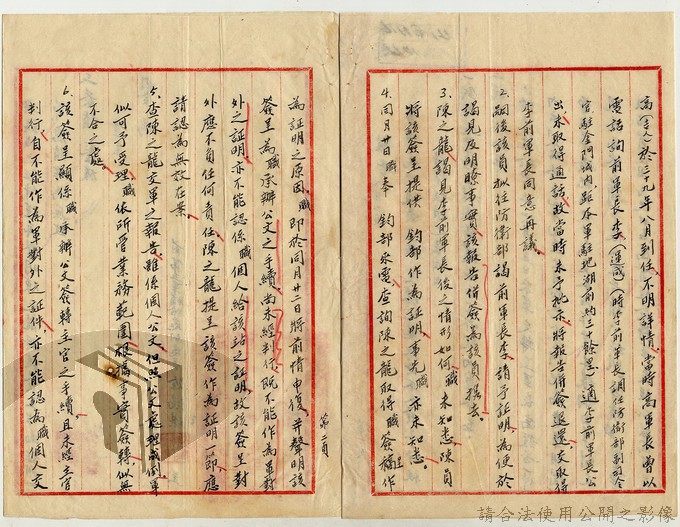 高(吉人)於三十九年八月到任、不明詳情、當時高軍長曾以
電話詢前軍長李(運成)(時李前軍長調任防衛部副司令
官駐金門城內、距本軍駐地湖前約三十餘里)適李前軍長公
出未取得通話故當時未予批示將報告併簽退還文取得
李前軍長同意再議。
2.嗣後該員擬往防衛部謁前軍長李請予証明、為便於
謁見及明瞭事實、該報告併簽為該員携去。
3.陳之龍謁見李前軍長後之情形如何、職未知悉、陳員
將該簽呈提供 鈞部作為証明事先職亦未知悉。
4.同月廿日職奉 鈞部永電、查詢陳之龍取得職簽呈稿作
第二頁
為証明之原因、職即於同月廿二日將前情申復、并聲明該
簽呈為職承辦公文之手續、尚未經判行、既不能作為軍對
外之証明、亦不能認係職個人給該站之証明、故該簽呈對
外應不負任何責任、陳之龍提呈該簽作為証明、以即應
請認為無效在案。
5.查陳之龍交軍之報告雖係個人公文、但照公文處理成例軍
似可予受理、職依所管業務範圍根據事實簽轉、似無
不合之處。
6.該簽呈顯係職承辦公文簽轉主官之手續、且未經主官
判行、自不能作為軍對外之証件、亦不能認為職個人交
請合法使用公開之影像